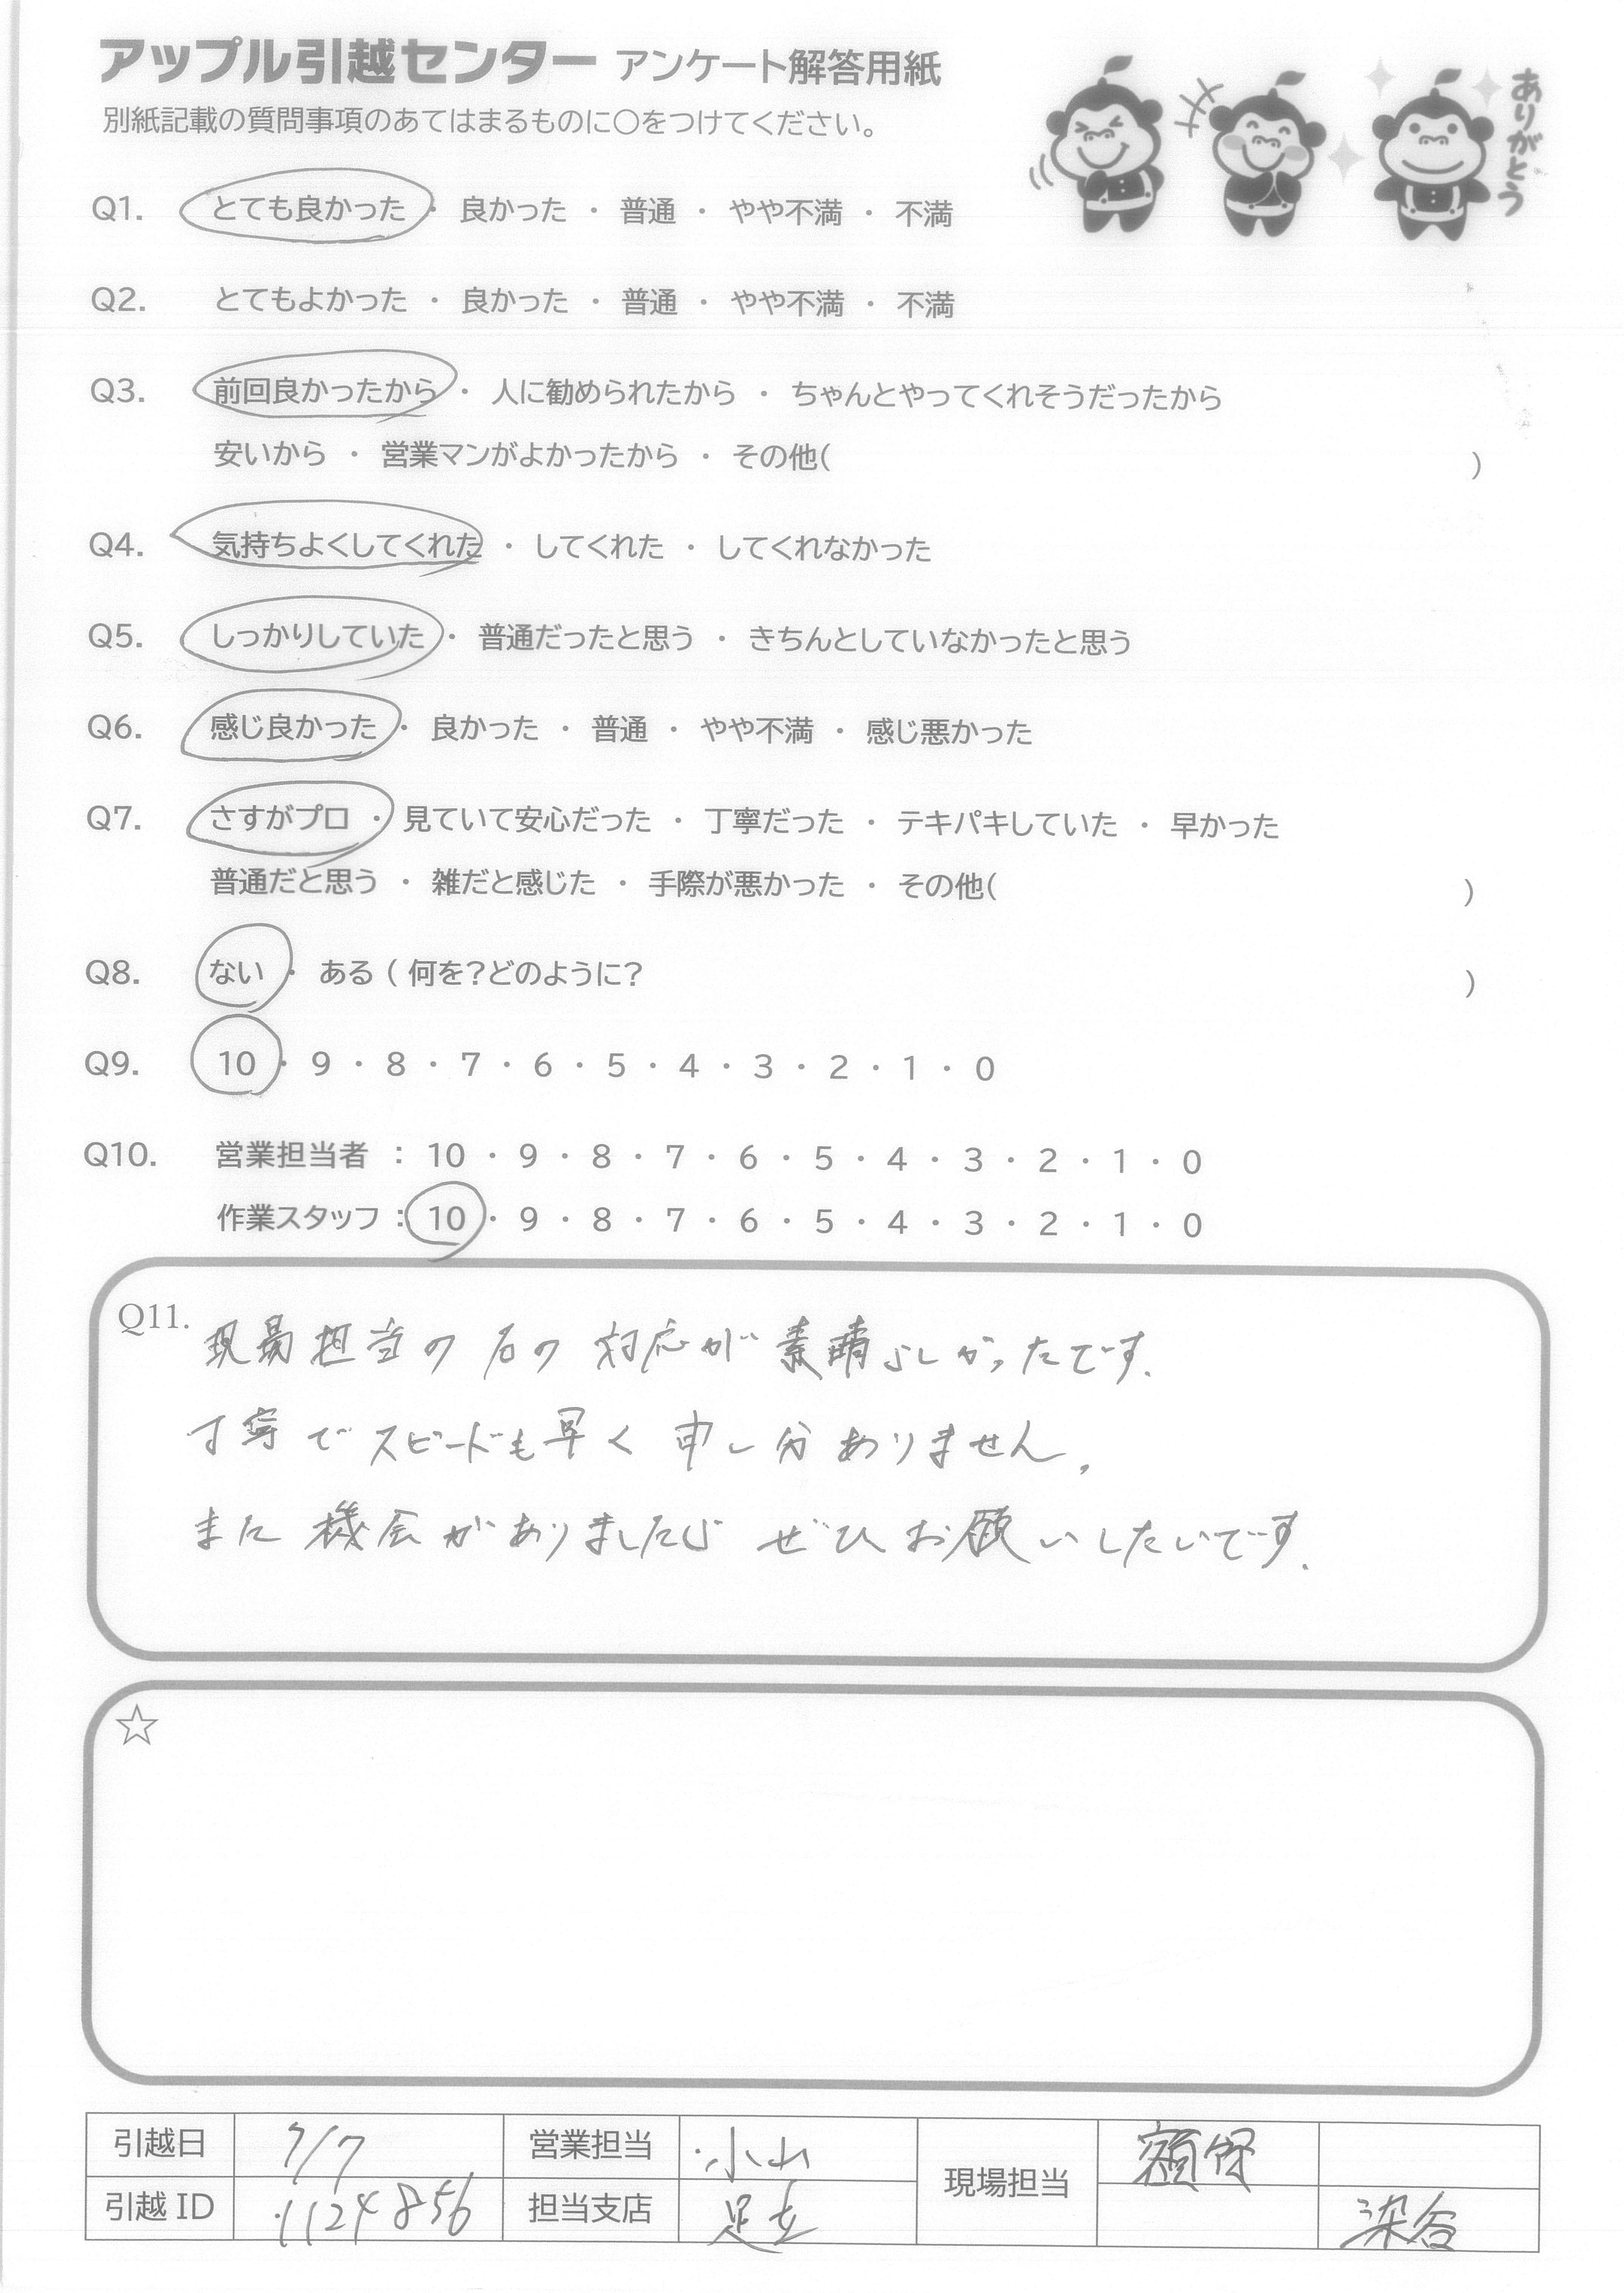 アップル引越センター アンケート解答用紙
別紙記載の質問事項のあてはまるものに○をつけてください。
ありがとう
Q1. とても良かった ・ 良かった ・ 普通 ・ やや不満 ・ 不満
Q2. とてもよかった ・ 良かった ・ 普通 ・ やや不満 ・ 不満
Q3. 前回良かったから ・ 人に勧められたから ・ ちゃんとやってくれそうだったから
安いから ・ 営業マンがよかったから ・ その他( )
Q4. 気持ちよくしてくれた ・ してくれた ・ してくれなかった
Q5. しっかりしていた ・ 普通だったと思う ・ きちんとしていなかったと思う
Q6. 感じ良かった ・ 良かった ・ 普通 ・ やや不満 ・ 感じ悪かった
Q7. さすがプロ ・ 見ていて安心だった ・ 丁寧だった ・ テキパキしていた ・ 早かった
普通だと思う ・ 雑だと感じた ・ 手際が悪かった ・ その他( )
Q8. ない ・ ある ( 何を?どのように? )
Q9. 10 ・ 9 ・ 8 ・ 7 ・ 6 ・ 5 ・ 4 ・ 3 ・ 2 ・ 1 ・ 0
Q10. 営業担当者 : 10 ・ 9 ・ 8 ・ 7 ・ 6 ・ 5 ・ 4 ・ 3 ・ 2 ・ 1 ・ 0
作業スタッフ : 10 ・ 9 ・ 8 ・ 7 ・ 6 ・ 5 ・ 4 ・ 3 ・ 2 ・ 1 ・ 0
Q11. 現場担当の方の対応が素晴らしかったです.
丁寧でスピードも早く申し分ありません。
また機会がありましたらぜひお願いしたいです.
☆
引越日 7/7 営業担当 小山 現場担当
引越 ID 1124856 担当支店 足立 染谷